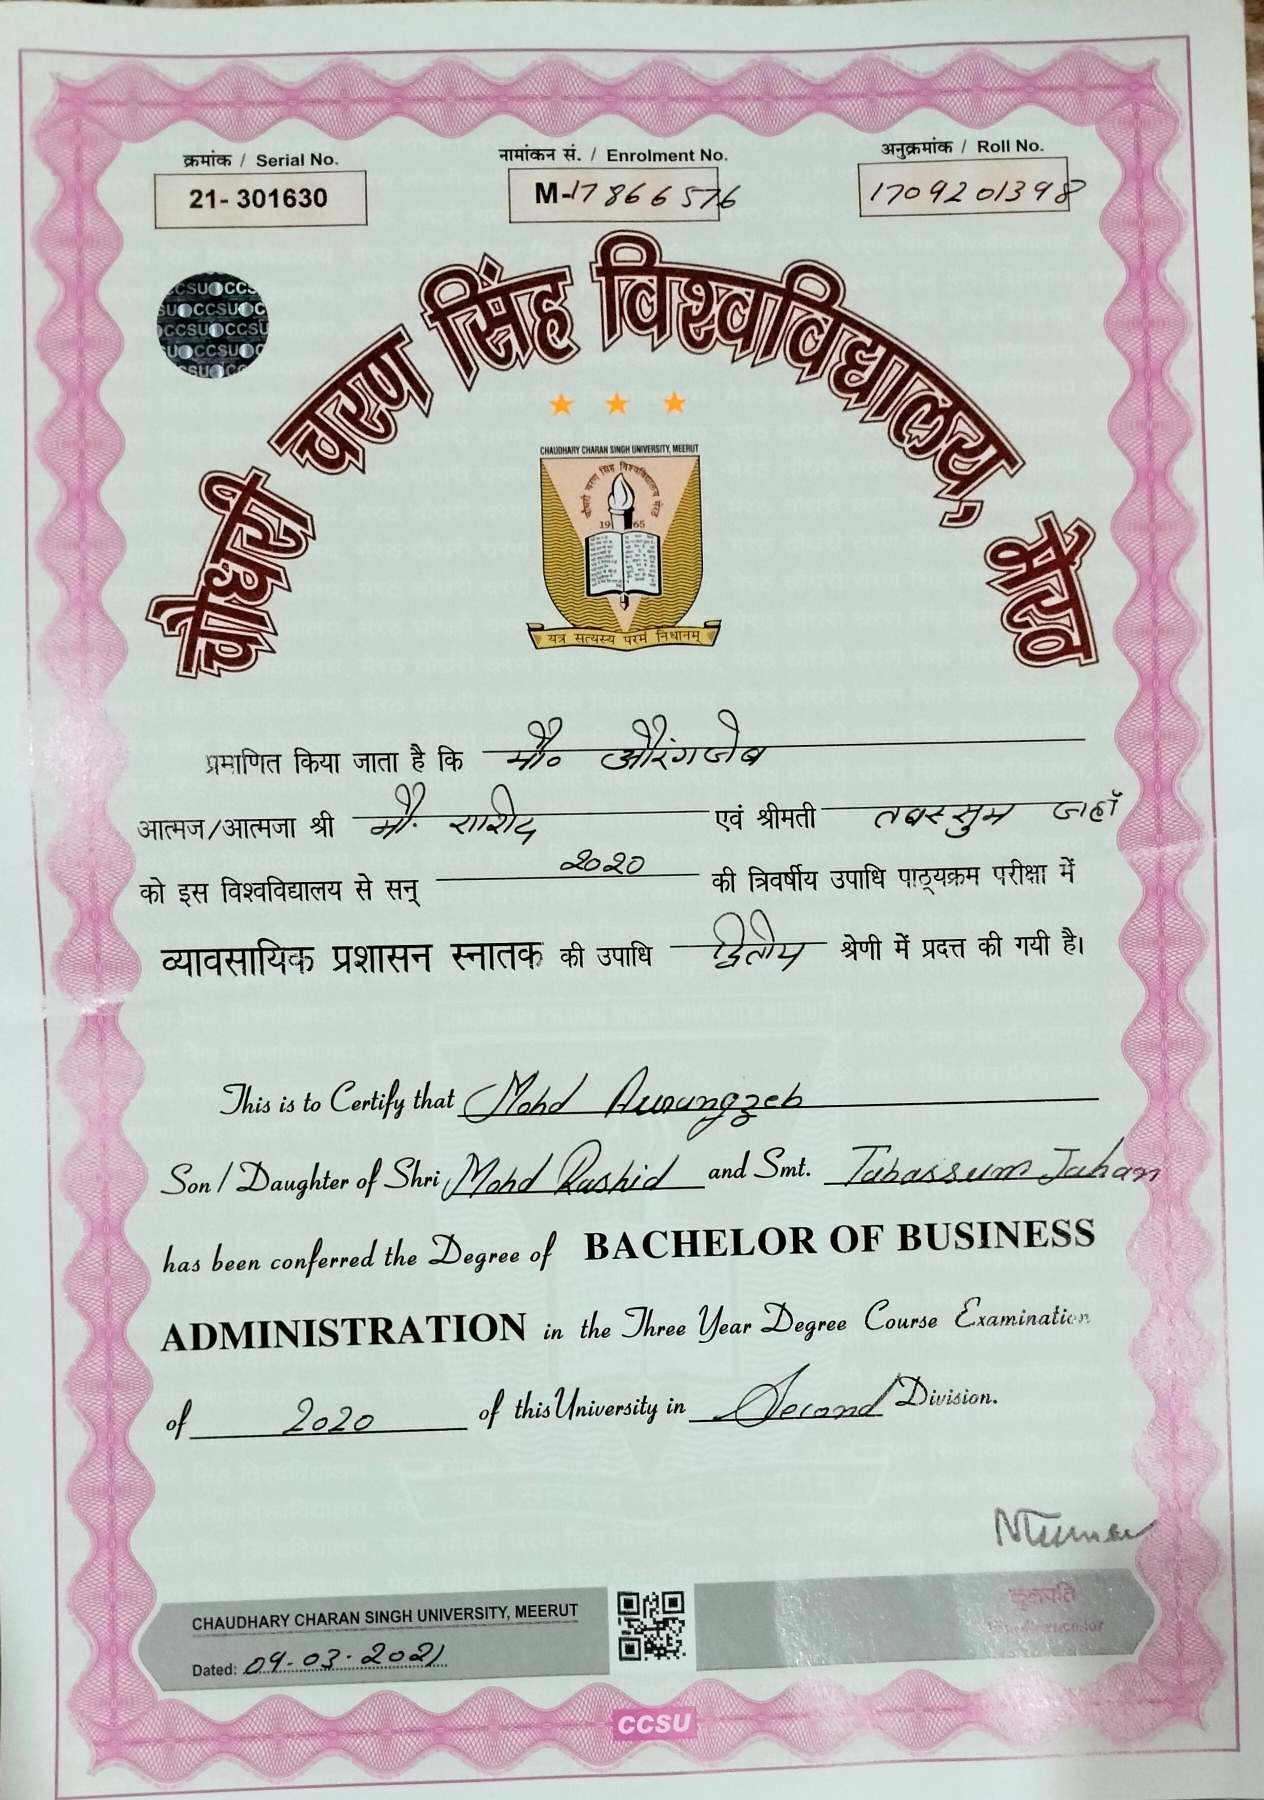 क्रमांक / Serial No.
21- 301630
नामांकन सं. / Enrolment No.
M-17866576
अनुक्रमांक / Roll No.
1709201398
चौधरी चरण सिंह विश्वविद्यालय, मेरठ
CHAUDHARY CHARAN SINGH UNIVERSITY, MEERUT
चौधरी चरण सिंह विश्वविद्यालय मेरठ
19 65
यत्र सत्यस्य परमं निधानम्
प्रमाणित किया जाता है कि मौ० औरंगजेब
आत्मज/आत्मजा श्री मौ. राशिद एवं श्रीमती तबस्सुम जहाँ
को इस विश्वविद्यालय से सन् २०२० की त्रिवर्षीय उपाधि पाठ्यक्रम परीक्षा में
व्यावसायिक प्रशासन स्नातक की उपाधि द्वितीय श्रेणी में प्रदत्त की गयी है।
This is to Certify that Mohd Aurangzeb
Son / Daughter of Shri Mohd Rashid and Smt. Tabassum Jahan
has been conferred the Degree of BACHELOR OF BUSINESS
ADMINISTRATION in the Three Year Degree Course Examination
of 2020 of this University in Second Division.
कुलपति
CHAUDHARY CHARAN SINGH UNIVERSITY, MEERUT
Dated: 09.03.2021
CCSU